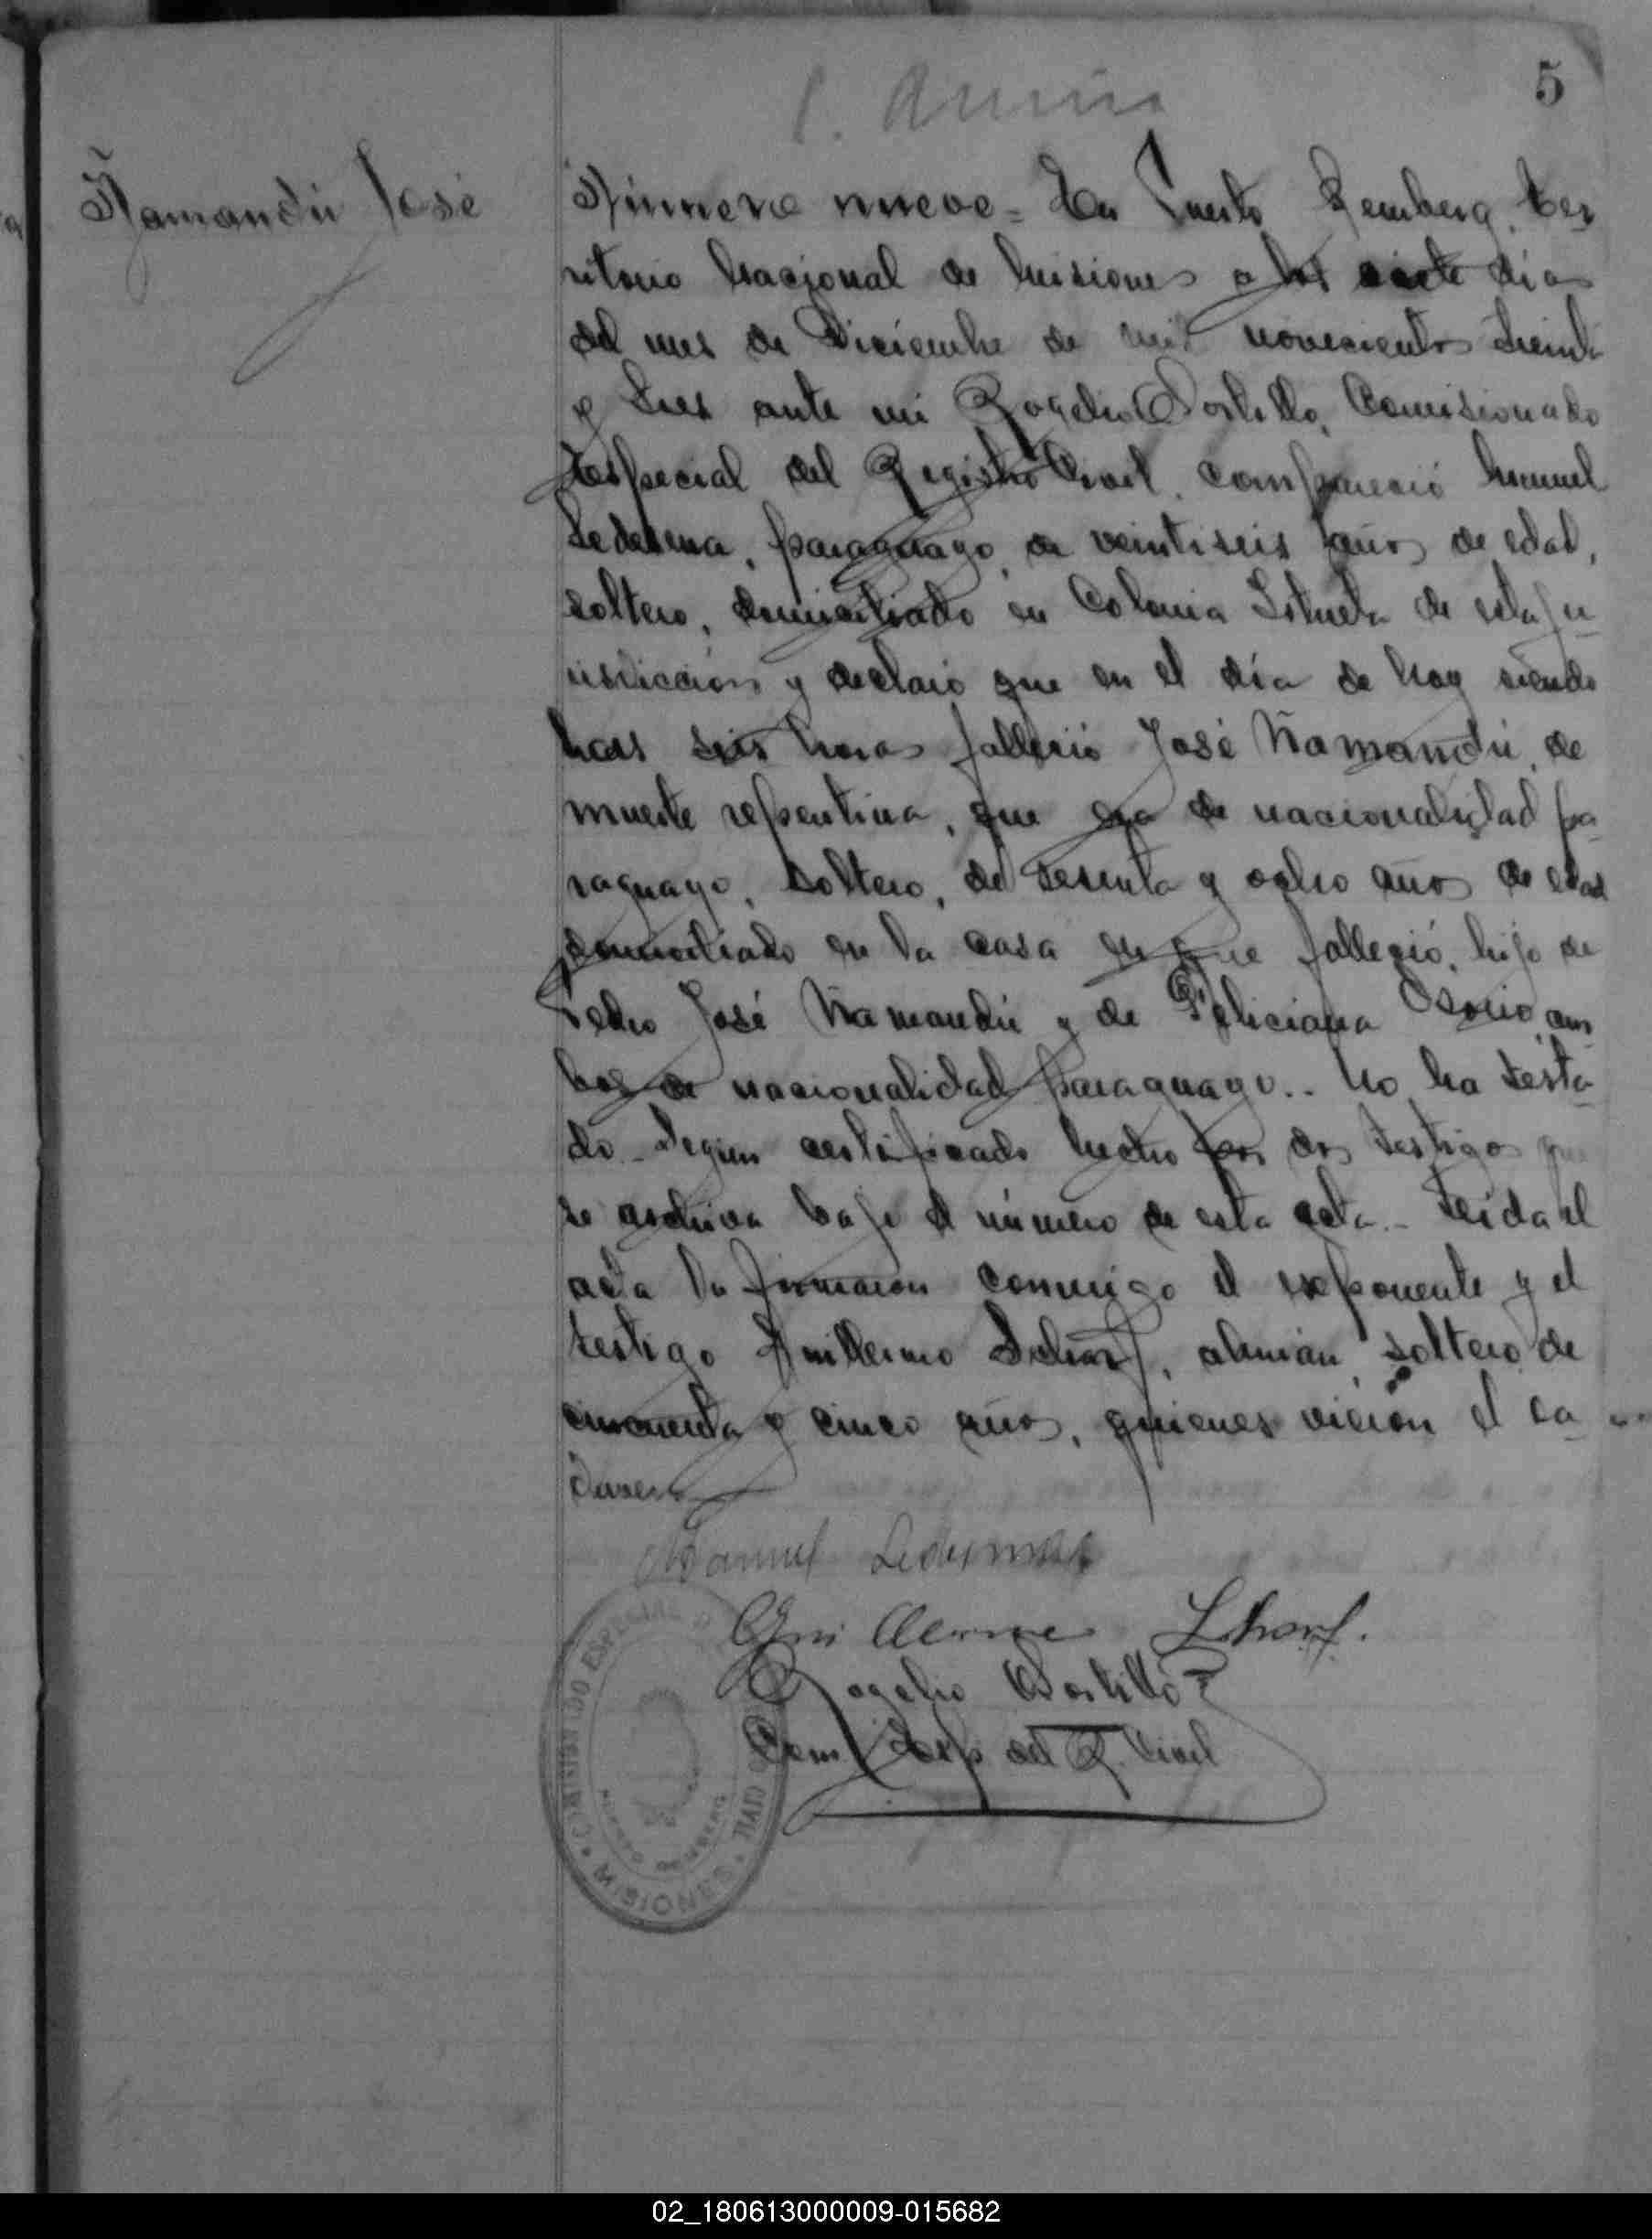 5
Ñamandú José
Número nueve = En Puerto Bemberg, Ter
ritorio Nacional de Misiones a los siete días
del mes de Diciembre de mil novecientos treinta
y tres ante mi Rogelio Portillo, Comisionado
Especial del Registro Civil, compareció Manuel
Ledesma, paraguayo, de veintiseis años de edad,
soltero, domiciliado en Colonia Istueta de esta ju
risdicción y declaró que en el día de hoy siendo
las seis horas falleció José Ñamandú, de
muerte repentina, que era de nacionalidad pa
raguayo, soltero, de sesenta y ocho años de edad
domiciliado en la casa en que falleció, hijo de
Pedro José Ñamandú y de Feliciana Osorio, am
bos de nacionalidad paraguayo.. No ha testa
do. Según certificado hecho por dos testigos que
se archiva bajo el número de esta acta.- Leída el
acta la firmaron conmigo el exponente y el
testigo Guillermo Scharf, alemán, soltero, de
cincuenta y cinco años, quienes vieron el ca
daver.
Manuel Ledesma
Guillermo Scharf.
Rogelio Portillo
Com. Esp. del R. Civil
COMISIONADO ESPECIAL REGISTRO CIVIL
PUERTO BEMBERG
MISIONES
02_180613000009-015682